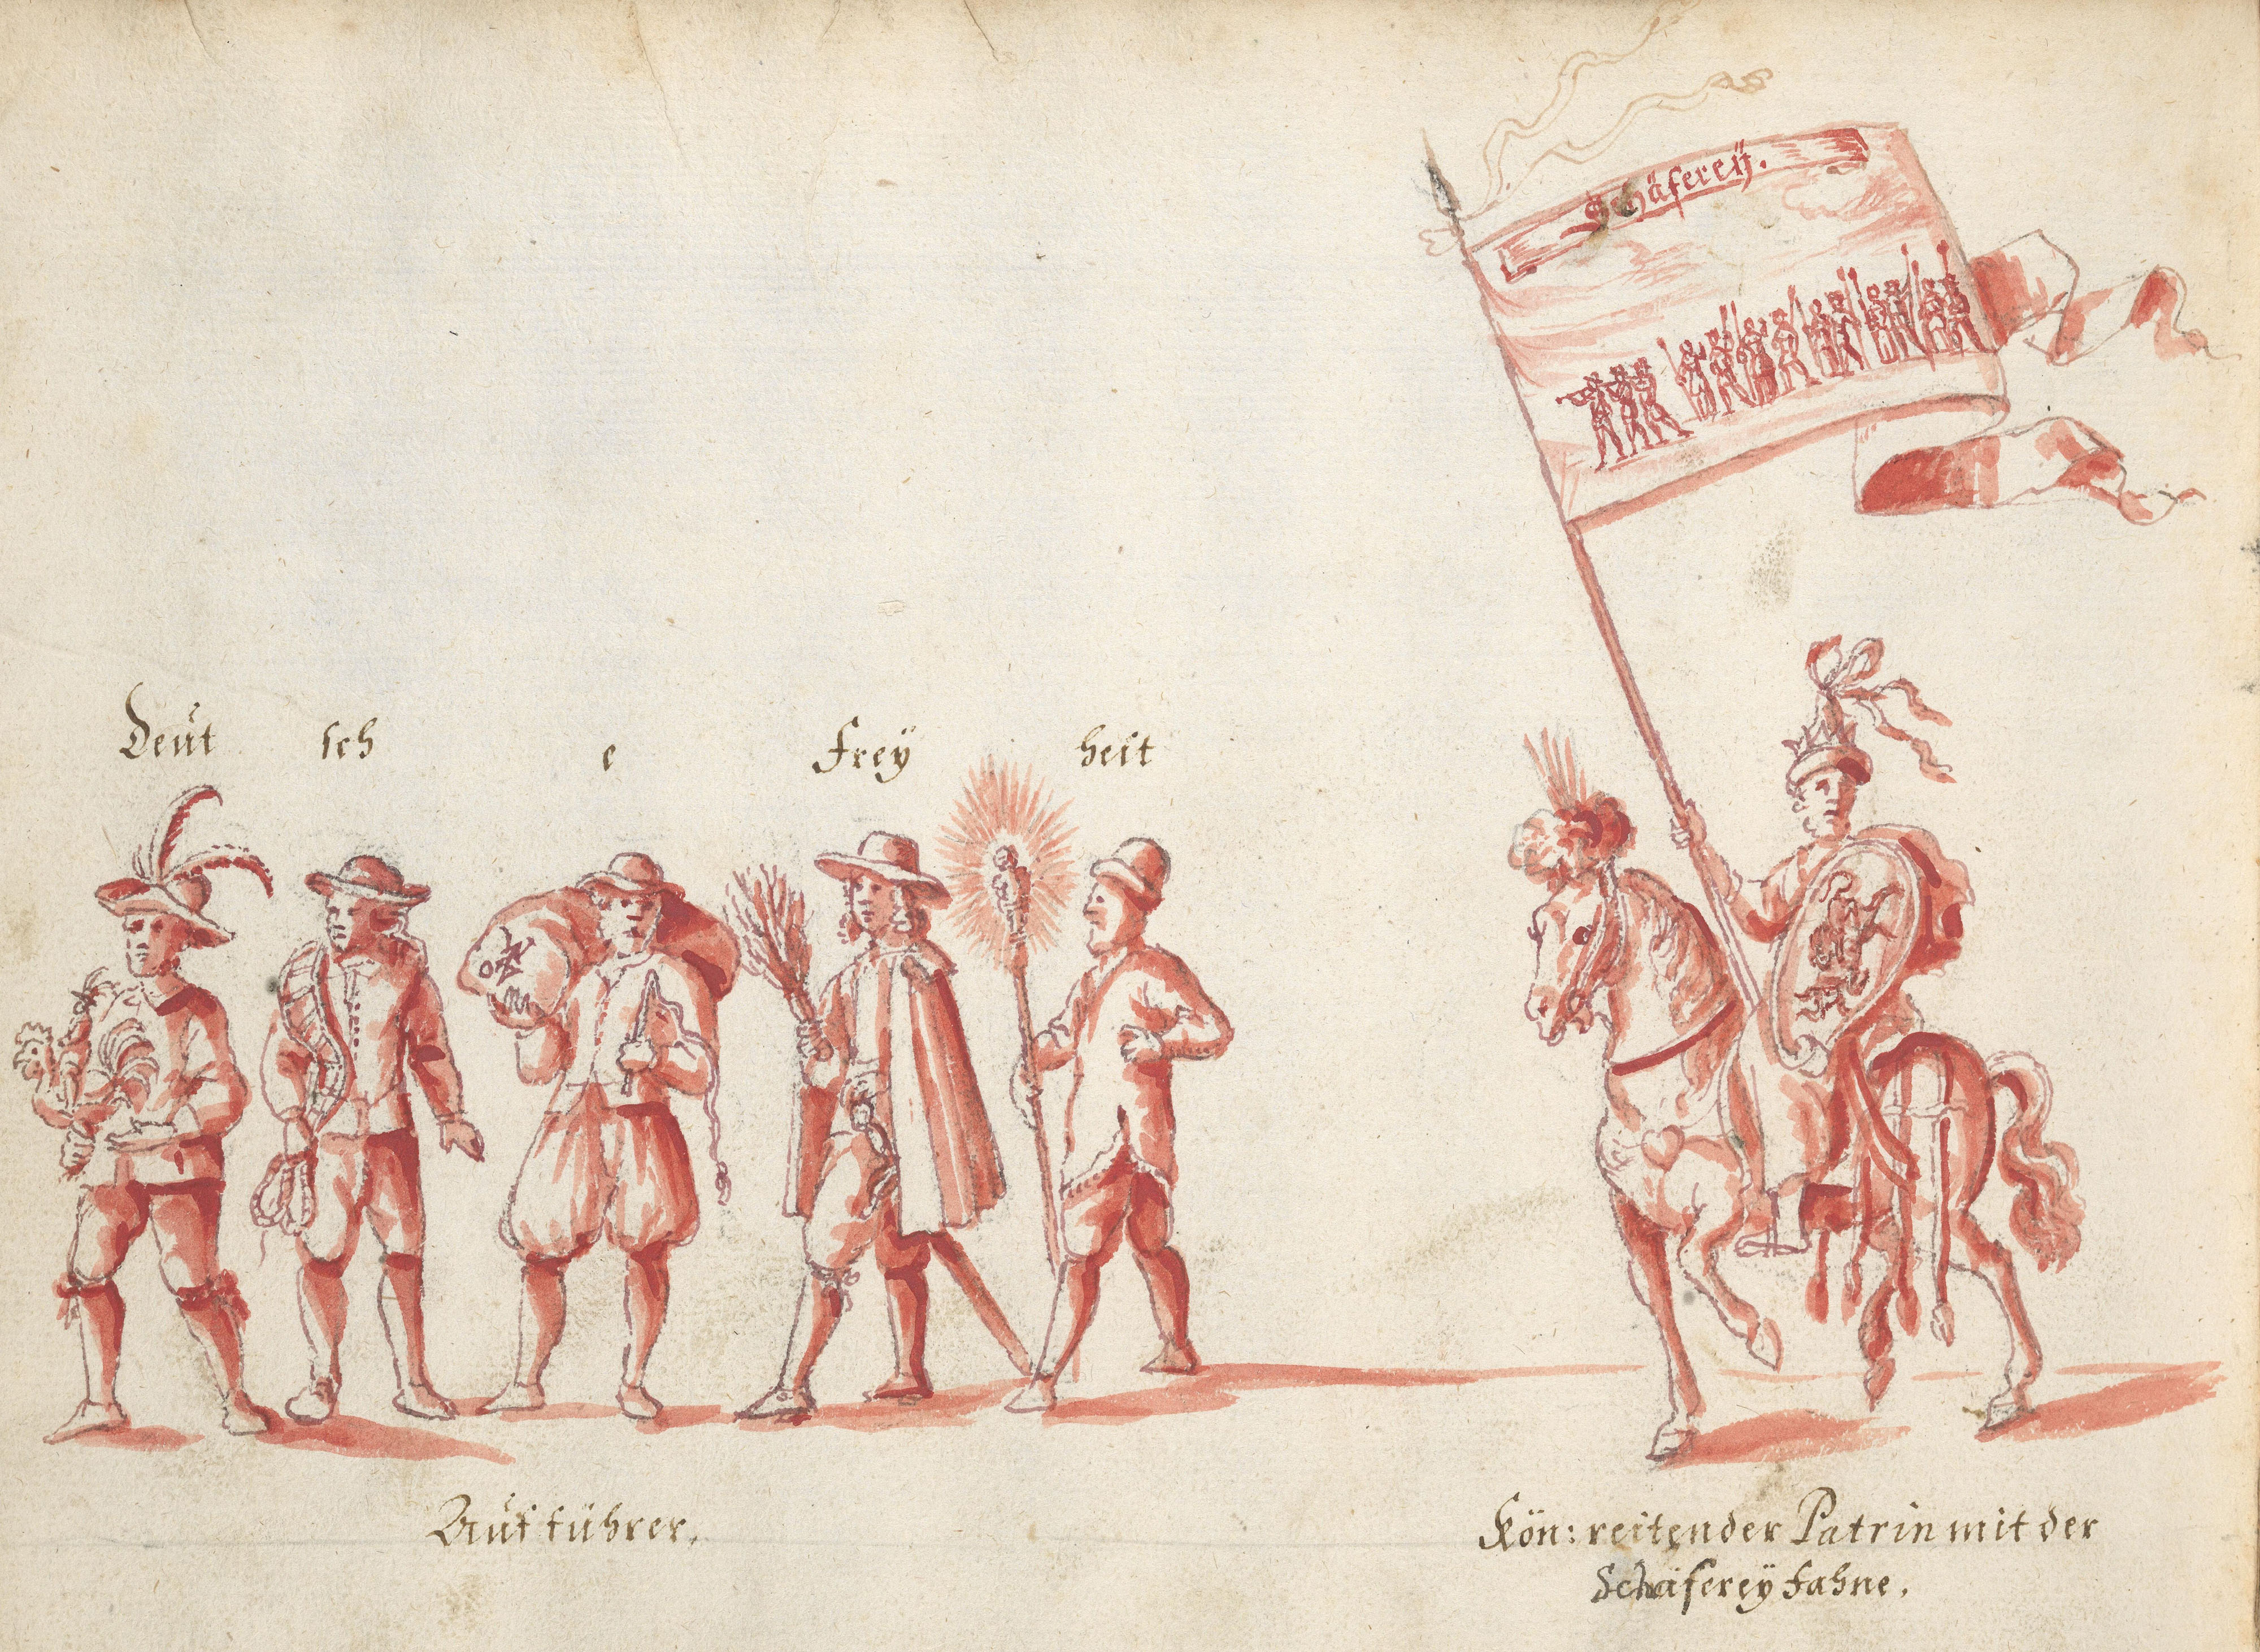 Schäfereÿ.
Deut sch e Freÿ heit
Auf führer.
Kön: reitender Patrin mit der
Schäfereÿ Fahne.